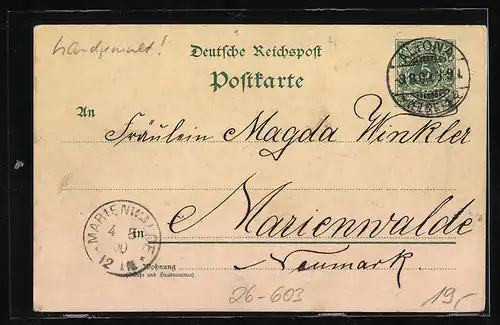 handgemalt!
Deutsche Reichspost
Postkarte
ALTONA
An Fräulein Magda Winkler
MARIENWALDE
in Marienwalde
Wohnung Neumark.
(Straße und Hausnummer)
26-603
19,-